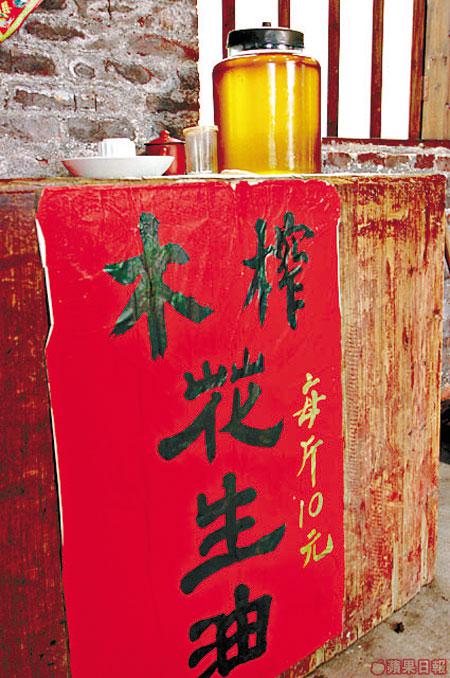 木榨
花生油
每斤10元
蘋果日報